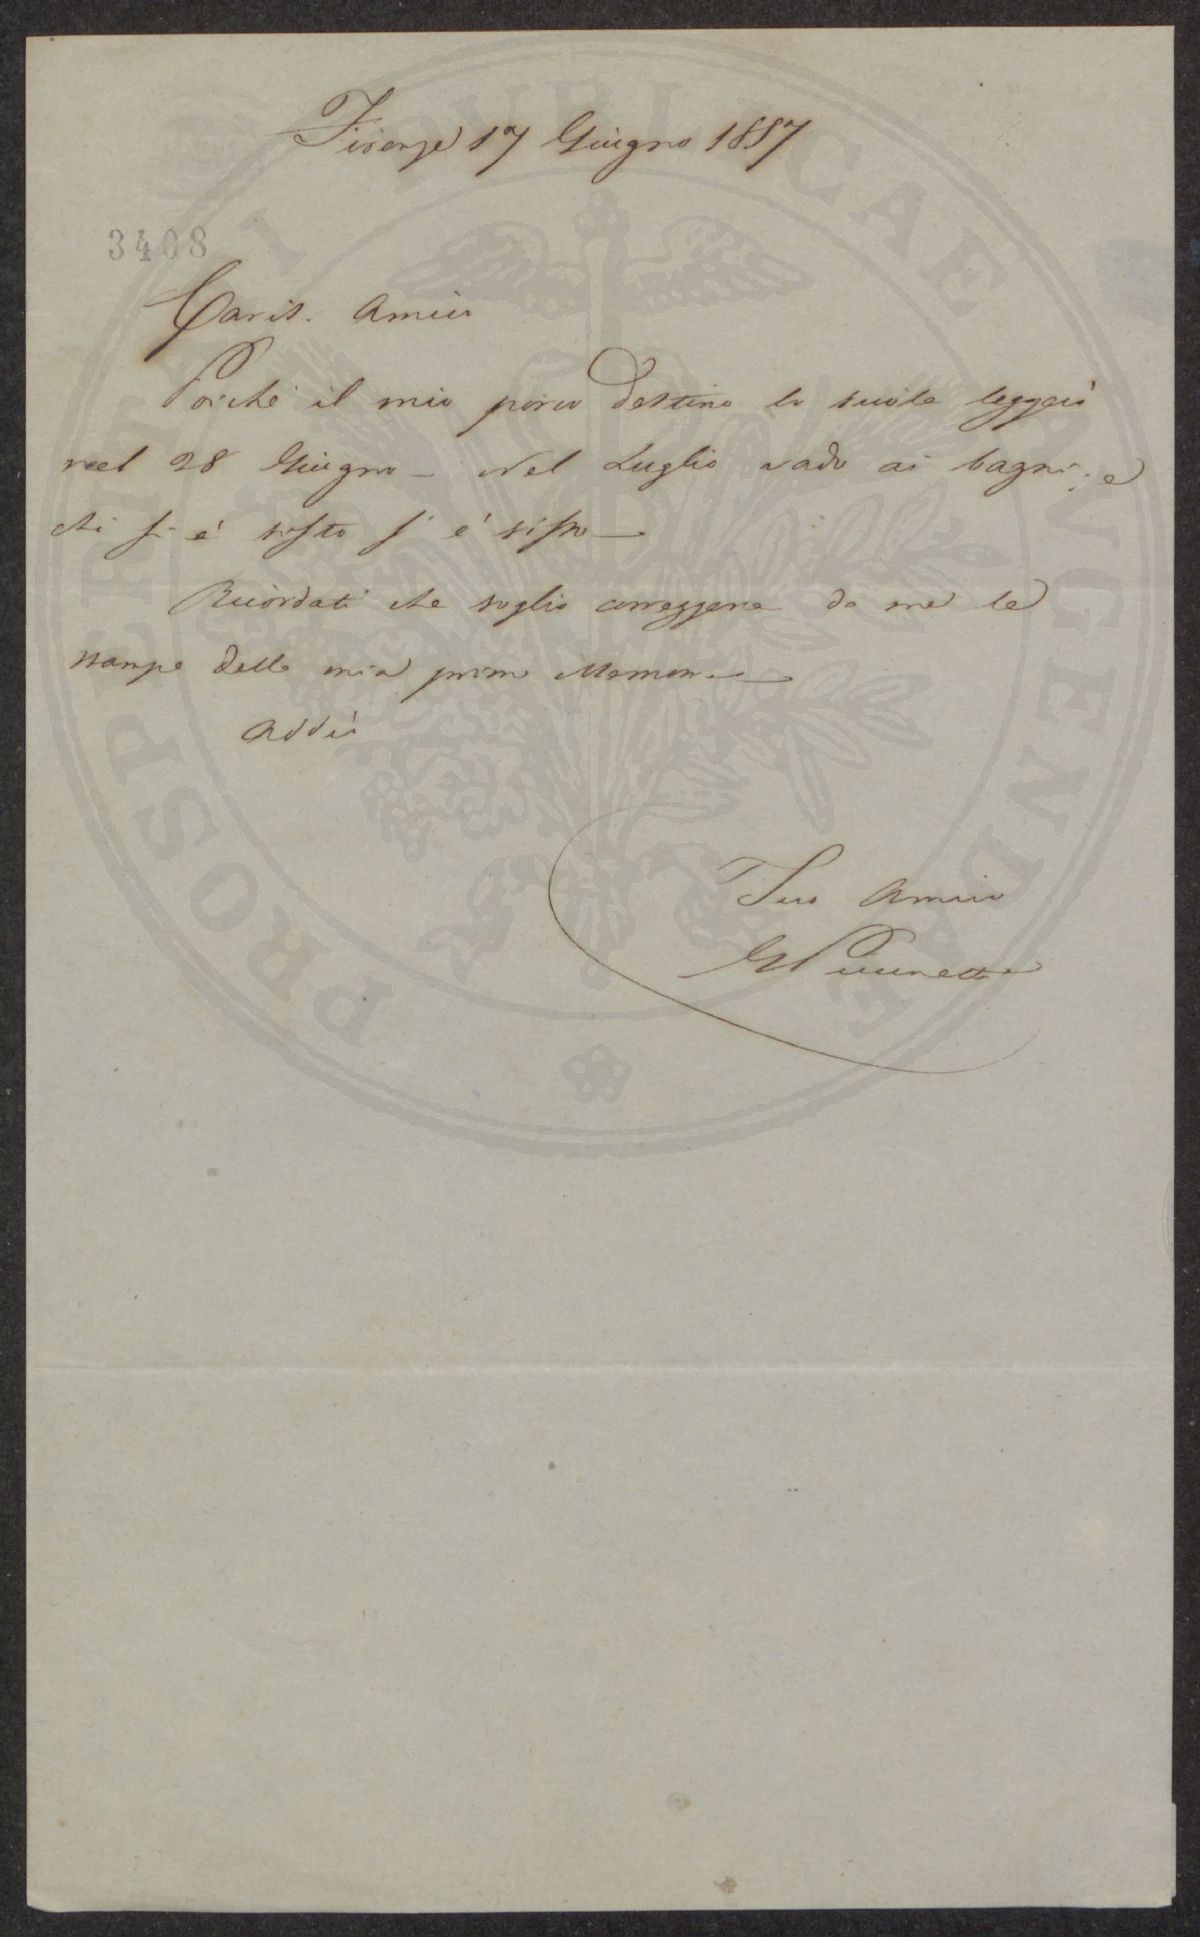 Firenze 17 Giugno 1857
3408
Cariss. Amico
Poiché il mio porco destino lo vuole leggerò
nel 28 Giugno – Nel Luglio vado ai bagni; e
chi s'è visto s'è visto –
Ricordati che voglio correggere da me le
stampe della mia prima Memoria –
Addio
Tuo Amico
PROSPERITATI PVBLICAE AVGENDAE